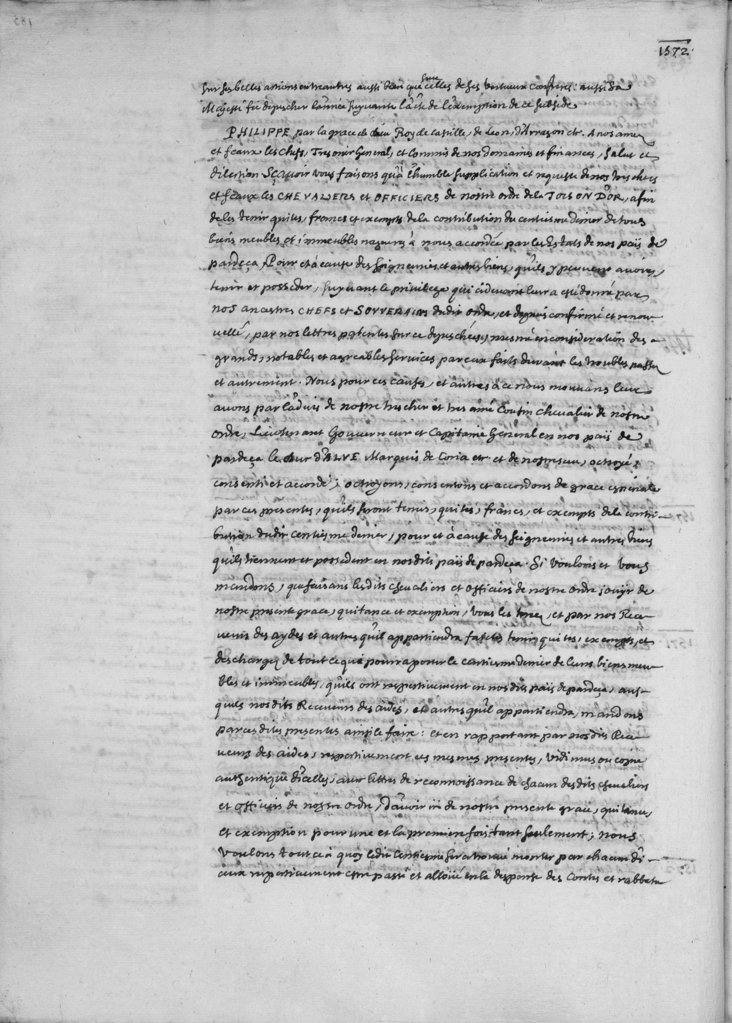 1572.
sur ses belles actions entreautres aussi bien que celles de ses vertueux Confreres: aussi Sa
Majesté fit depescher l'année suyvante l'acte de l'exemption de ce subside
PHILIPPE par la grace de dieu Roy de Castille, de Leon, d'Arragon etc. A nos amez
et feaux les Chefs, Tresorier General, et Commis de nos domaines et finances, salut et
dilection Sçavoir vous faisons qu'à l'humble supplication et requeste de nos tres chers
et feaux les CHEVALIERS et OFFICIERS de nostre ordre de la TOISON D'OR, afin
de les tenir quites, francs et exempts de la contribution du centiesme denier de tous
biens meubles et immeubles naguere à nous accordée par les Estats de nos païs de
pardeça, Pour et à cause des seigneuries et autres biens, qu'ils y peuvent avoir,
tenir et posseder, suyvant le privilege qui cidevant leur a esté donné par
nos ancestres CHEFS et SOUVERAINS dudit ordre, et depuis confirmé et renou-
vellé, par nos lettres patentes sur ce depeschées, mesme en consideration des
grands, notables et agreables services par eux faits durant les troubles passez
et autrement. Nous pour ces causes, et autres à ce nous mouvans leur
avons par l'advis de nostre tres cher et tres amé Cousin Chevalier de nostre
ordre, Lieutenant Gouverneur et Capitaine General en nos païs de
pardeça le duc d'ALVE Marquis de Coria etc et de nostre octroyé,
consenti et accordé; octroyons, consentons et accordons de grace especiale
par ces presentes, qu'ils seront tenus, quites, francs, et exempts de la contri-
bution dudit centiesme denier, pour et à cause des seigneuries et autres biens
qu'ils tiennent et possedent en nosdits païs de pardeça. Si voulons et vous
mandons, que faisans lesdits chevaliers et officiers de nostre ordre jouyr de
nostre presente grace, quitance et exemption, vous les tenez, et par nos Rece-
veurs des aydes et autres qu'il appartiendra faites tenir quites, exempts, et
deschargez de tout ce que pourra porter le centiesme denier de leurs biens meu-
bles et immeubles, qu'ils ont respectivement en nosdits païs de pardeça, aus-
quels nosdits Receveurs des aides, et autres qu'il appartiendra, mandons
par cesdites presentes ainsi le faire: et en rapportant par nosdits Rece-
veurs des aides, respectivement ces mesmes presentes, vidimus ou copie
authentique d'icelles, avec lettres de reconnoissance de chacun desdits chevaliers
et officiers de nostre ordre, d'avoir joï de nostre presente grace, quitance,
et exemption pour une et la premiere fois tant seulement; nous
voulons tout ce à quoy ledit Centiesme sera trouvé monter par chacun di-
ceux respectivement estre passé et alloüé en la despense des Contes et rabbatu